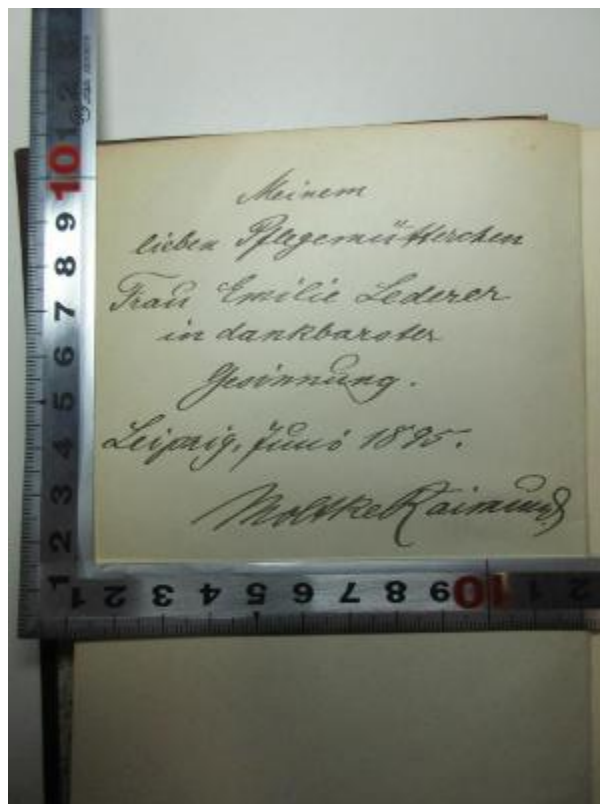 Meinem
lieben Pflegemütterchen
Frau Emilie Lederer
in dankbarster
Gesinnung.
Leipzig, Juni 1895.
Moltke Raimund
10
9
8
7
6
5
4
3
2
1
1 2 3 4 5 6 7 8 9 10 1 2